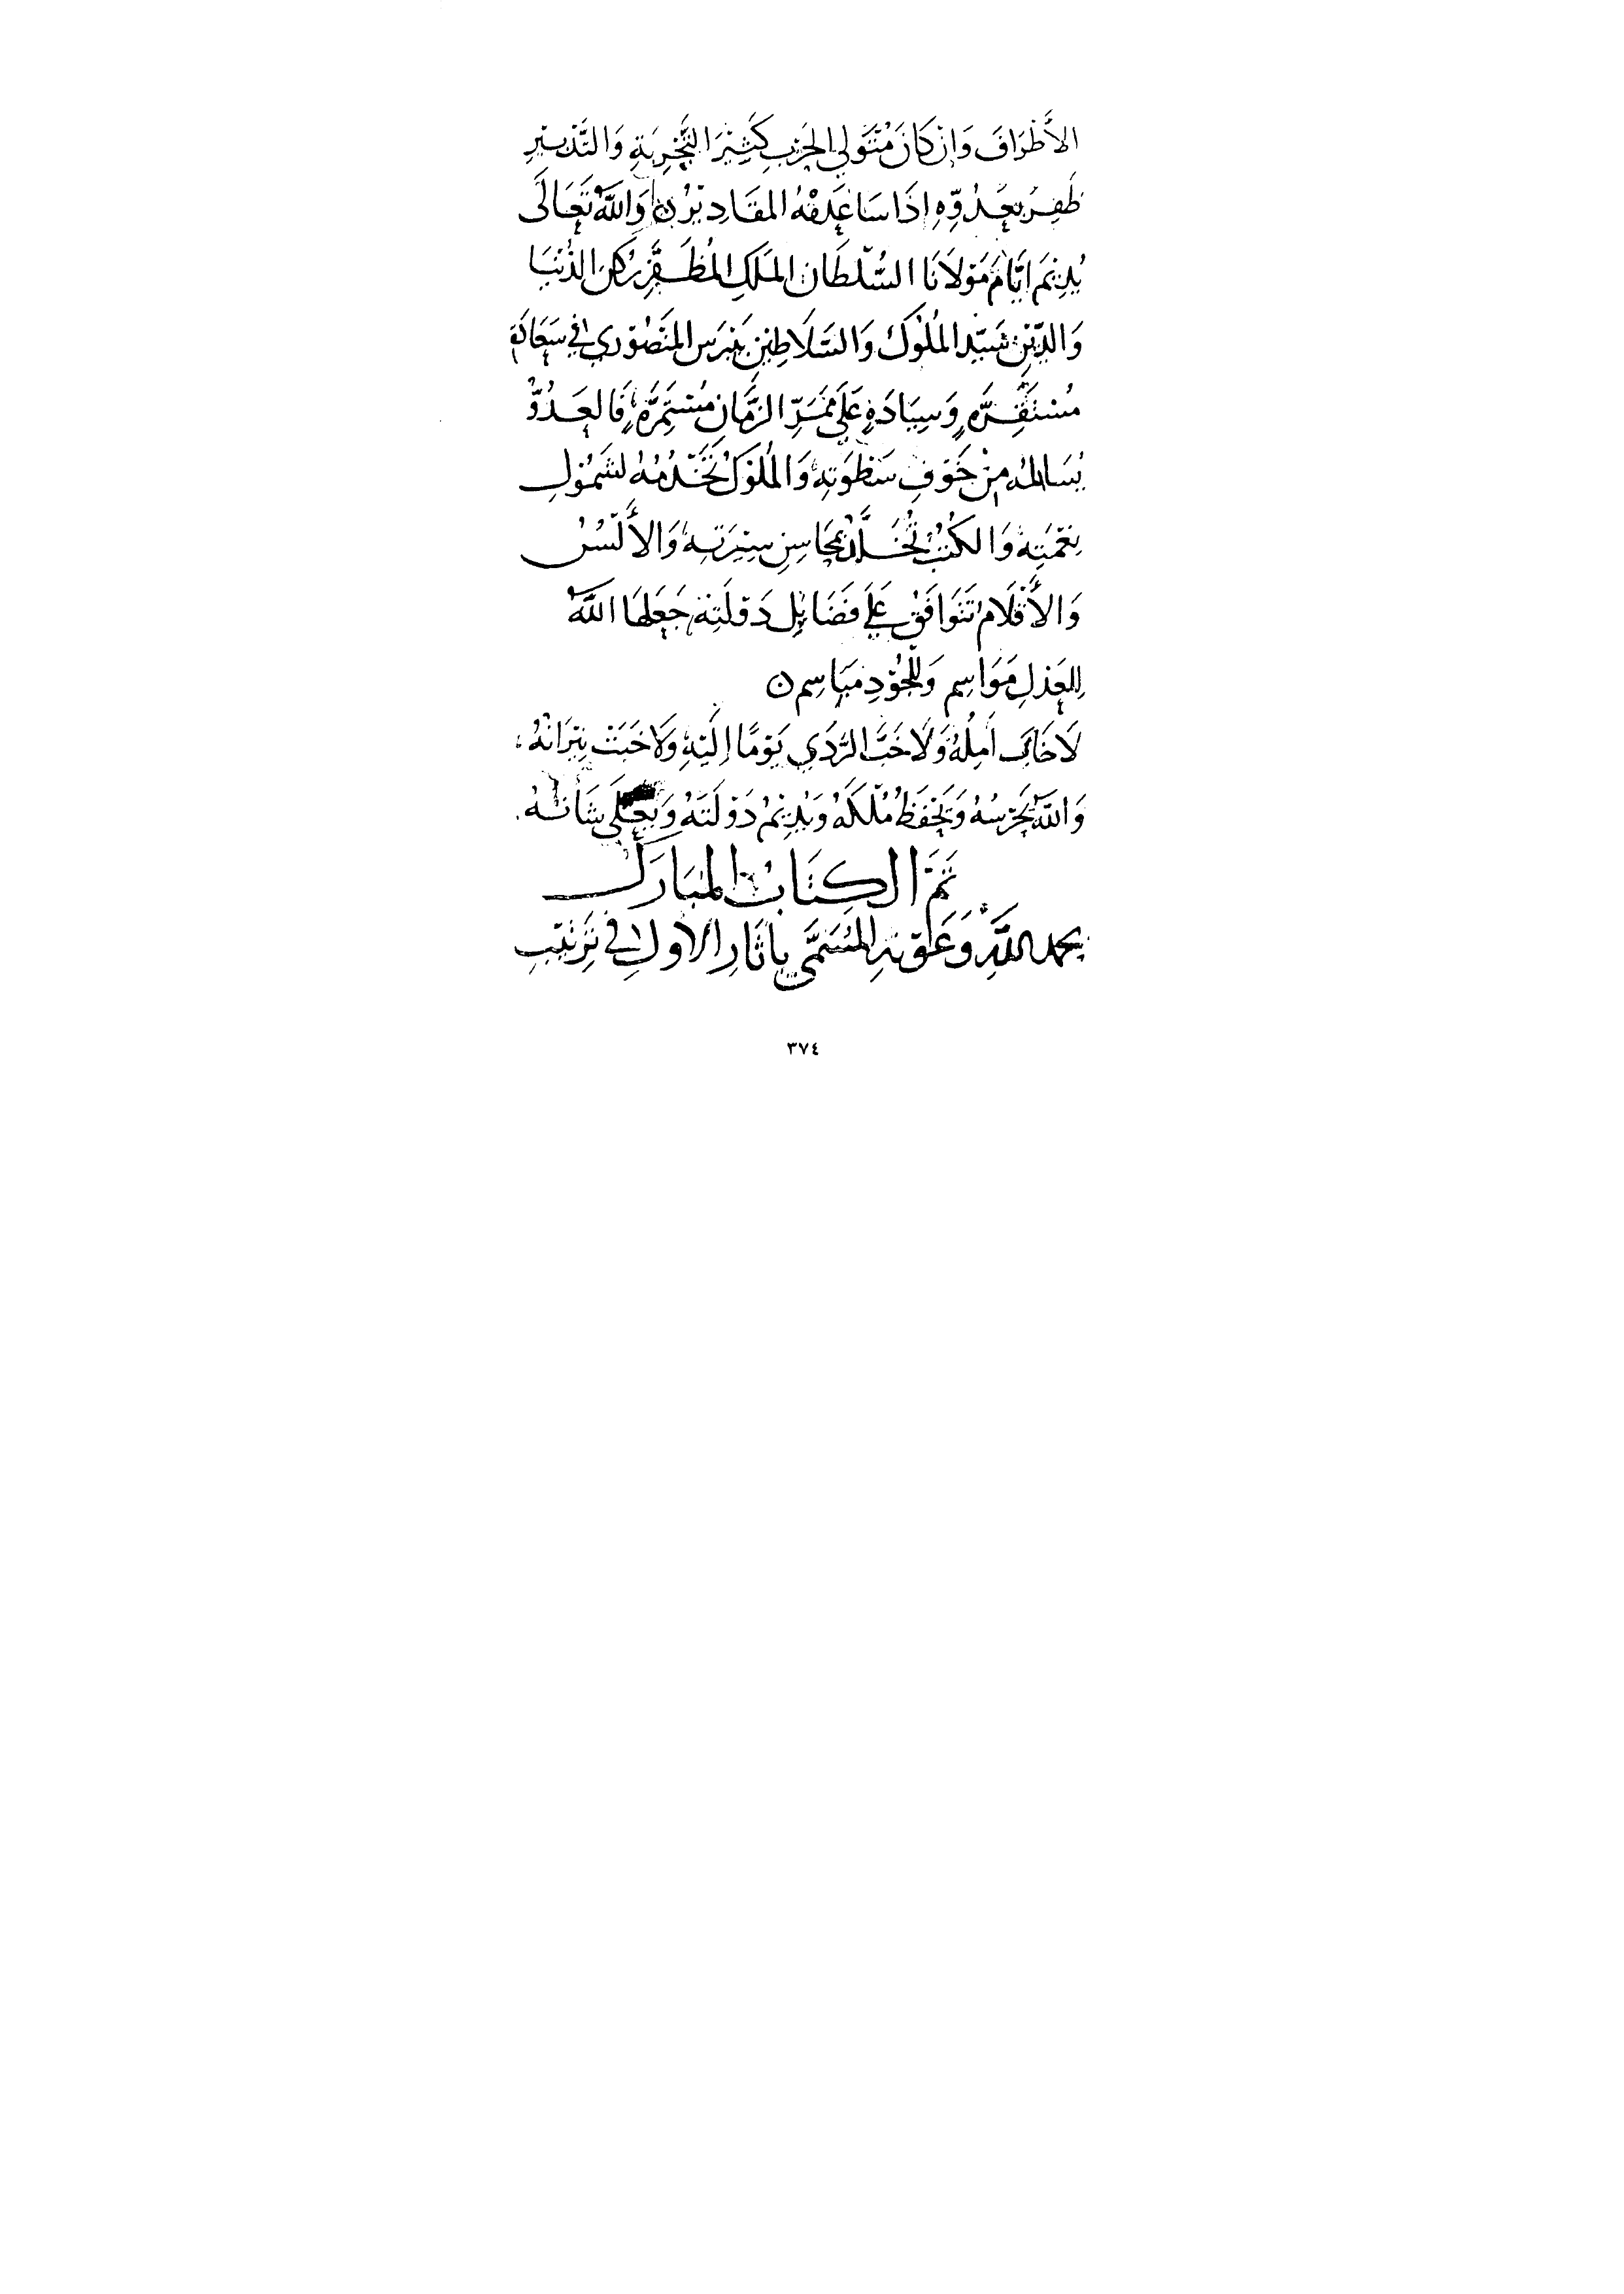 الأَطْرَافَ وَإنْ كَانَ مُتَوَلي الحَرْبِ كَثِيْرَ التَّجْرِبَةِ وَالتَّدْبِيْرِ
ظَفِرَ بعَدُوِّهِ إذَا سَاعَدَتْهُ المقَادِيْرُ ن وَاللَّهُ تَعَالَى
يُدِيْمَ ايَّامَ مَوْلَانَا السُّلْطَان المَلَكِ المُظَفَّرِ رُكنِ الدُنْيَا
وَالدِّيْنِ سَيِّد المُلُوْك وَالسَّلَاطِيْنِ بَيْبَرَس المَنْصُوْرِي في سَعَادَةٍ
مُسْتَقِرَّهٍ وَسِيَادَةٍ عَلَى مَمَرِّ الزَّمَانِ مُسْتَمِرَّهٍ، فَالعَدُوُّ
يُسَالمُهُ مِنْ خَوْفِ سَطْوَتِهِ وَالمُلُوْكُ تَخْدُمُهُ لشَمُوْلِ
نِعْمَتِهِ وَالكُتُبُ تُخَلَّدُ بمَحَاسِنِ سِيْرَتِهِ وَالأَلْسُنُ
وَالأَقْلَامُ تَتَوَافَقُ عَلَى فَضَايِلِ دَوْلَتِهِ جَعَلهَا اللَّهُ
لِلعَدْلِ مَوَاسِم وَلِلجُوْدِ مَبَاسِم ن
لَا خَابَ آمِلُهُ وَلَا خَبَّ الرَّدَي يَوْمًا إِلَيْهِ وَلا خَبَتْ نِيْرَانُهُ،
وَاللَّهُ يَحْرُسُهُ وَيَحْفَظُ مُلْكَهُ وَيُدِيْمُ دَوْلَتَهُ وَيُعْلَي شَانَهُ.
تَمَّ الكِتَابُ المُبَارَك
بحمد اللَّهِ وَعَوْنِهِ المُسَمَّى بِآثَارِ الأُوَلِ في تَرْتِيْبِ
٣٧٤